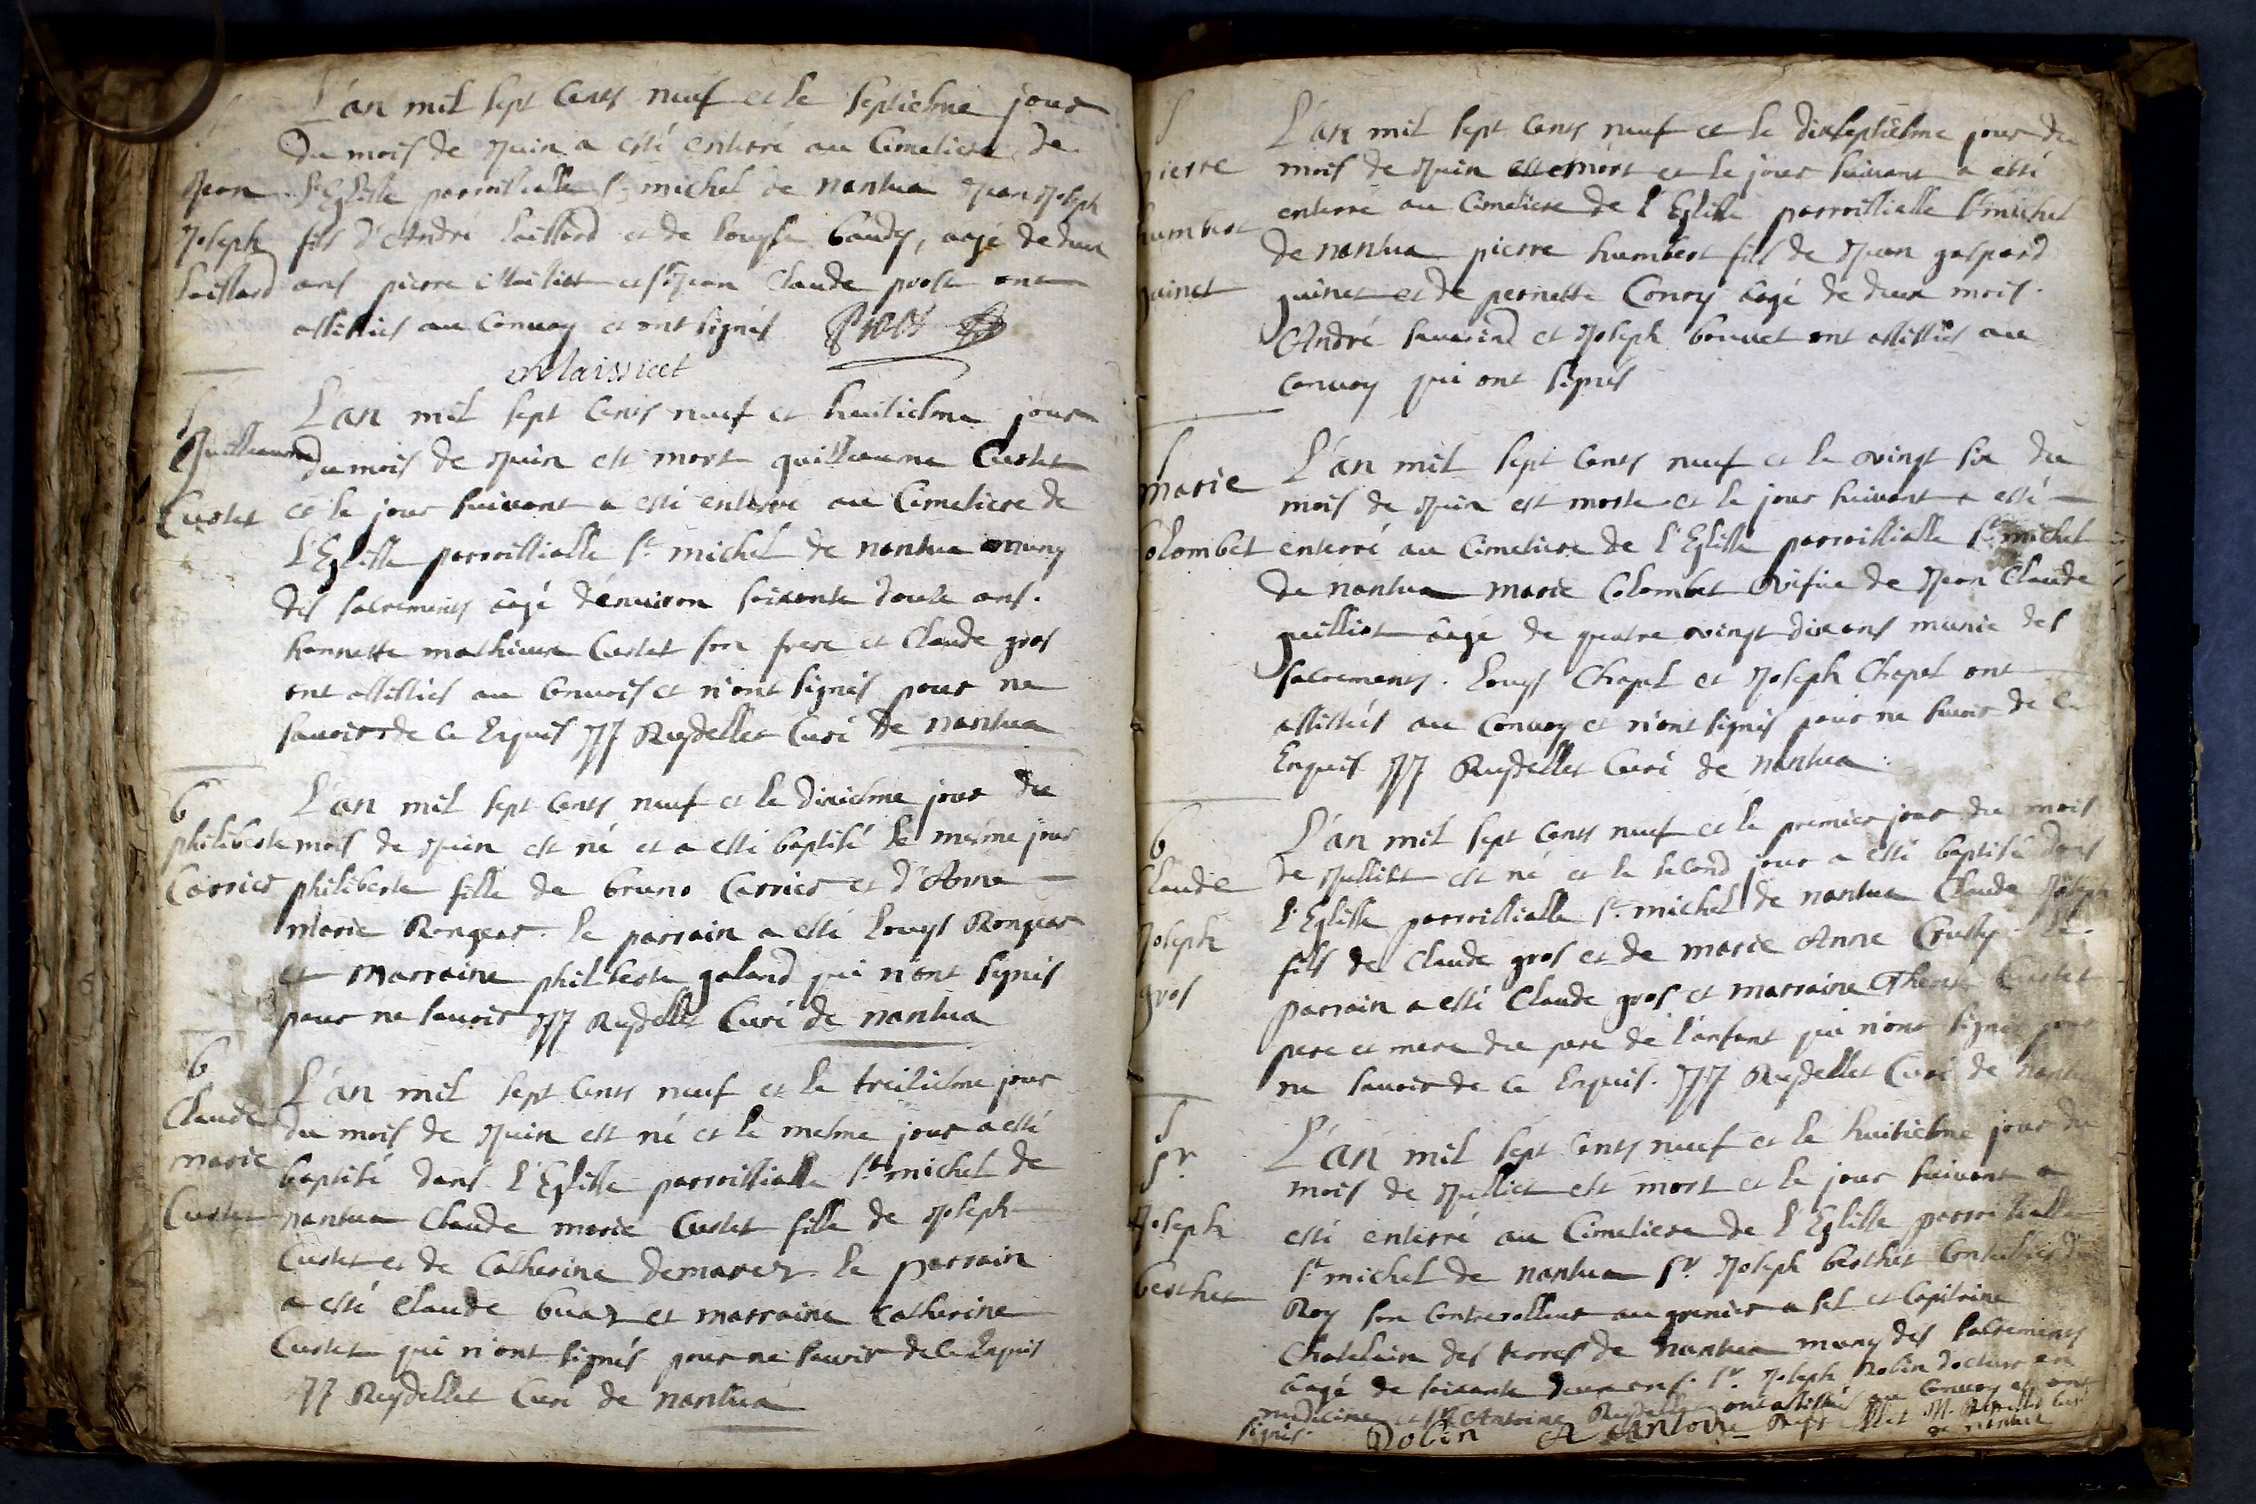 L'an mil sept Cents neuf et le septiesme jour
du mois de Juin a esté enterré au Cimetiere de
Jean l'Eglisse parroissialle St michel de nantua Jean Joseph
Joseph fils d'André Laissard et de Louyse baudy, aagé de deux
Laissard ans pierre Maissiet et Sr Jean Claude prost ont
assistés au Convoy et ont signés Prost
Maissiet
Guillaume
Curtet
L'an mil sept Cents neuf et huitiesme jour
du mois de Juin est mort guillaume Curtet
et le jour suivant a esté enterré au Cimetiere de
l'Eglisse parroissialle St michel de nantua muny
des sacrements aagé d'enuiron soixante douze ans.
honnette mathieu Curtet son frere et Claude gros
ont assistés au Convois et n'ont signés pour ne
sauoir de ce Enquis JJ Ruydellet Curé de nantua
b
philiberte
Carrier
L'an mil sept Cents neuf et le dixiesme jour du
mois de Juin est né et a esté baptisé le mesme jour
philiberte fille de bruno Carrier et d'Anne
marie Rongear. le parrain a esté Louys Rongear
et marraine philiberte galand qui n'ont signés
pour ne sauoir JJ Ruydellet Curé de nantua
b
Claude
marie
Curtet
L'an mil sept Cents neuf et le treiziesme jour
du mois de Juin est né et le mesme jour a esté
baptisé dans l'Eglisse parroissialle St michel de
nantua Claude marie Curtet fille de Joseph
Curtet et de Catherine demarez. le parrain
a esté Claude buaz et marraine Catherine
Curtet qui n'ont signés pour ne sauoir de ce Enquis
JJ Ruydellet Curé de nantua
S
pierre
humbert
guinet
L'an mil sept Cents neuf et le dixseptiesme jour du
mois de Juin est mort et le jour suivant a esté
enterré au Cimetiere de l'Eglisse parroissialle St michel
de nantua pierre humbert fils de Jean gaspard
guinet et de pernette Convoy aagé de deux mois.
André sauarin et Joseph bouuet ont assistés au
Convoy qui ont signés
S
marie
Colombet
L'an mil sept Cents neuf et le vingt six du
mois de Juin est morte et le jour suivant a esté
enterré au Cimetiere de l'Eglisse parroissialle St michel
de nantua marie Colombet vefue de Jean Claude
guilliot aagé de quatre vingt dix ans munie des
sacrements. Louys Chapel et Joseph Chapel ont
assistés au Convoy et n'ont signés pour ne sauoir de ce
Enquis JJ Ruydellet Curé de nantua.
b
Claude
Joseph
gros
L'an mil sept Cents neuf et le premier jour du mois
de Juilliet est né et le second jour a esté baptisé dans
l'Eglisse parroissialle St michel de nantua Claude Joseph
fils de Claude gros et de marie Anne Le
parrain a esté Claude gros et marraine Curtet
pere et mere du pere de l'anfant qui n'ont signés pour
ne sauoir de ce Enquis. JJ Ruydellet Curé de nantua
S
Sr
Joseph
berthet
L'an mil sept Cents neuf et le huitiesme jour du
mois de Juilliet est mort et le jour suivant a
esté enterré au Cimetiere de l'Eglisse parroissialle
St michel de nantua Sr Joseph berthet Conseillier du
Roy son Contrerolleur au grenier a sel et Capitaine
Chatelain des terres de nantua muny des sacrements
aagé de soixante deux ans. Sr Joseph Robin docteur en
medicine et Sr Antoine Ruydellet ont assistés au Convoy et ont
signés. Robin Antoine Ruydellet JJ. Ruydellet Curé
de nantua